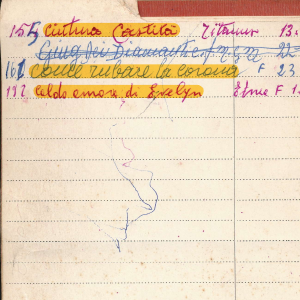 155 cintura Castità Titanus 13.
Gung dei Diamanti
161 come rubare la corona F 23
192 caldo amore di Evelyn Etrue F 1